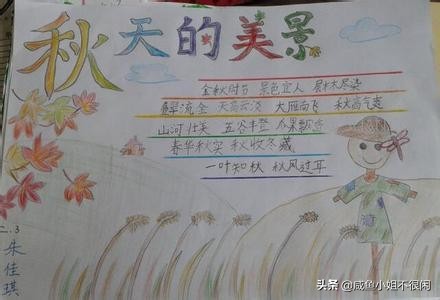 秋天的美景
金秋时节 景色宜人 层林尽染
叠翠流金 天高云淡 大雁南飞 秋高气爽
山河壮美 五谷丰登 瓜果飘香
春华秋实 秋收冬藏
一叶知秋 秋风过耳
二.3
朱佳琪
头条 @咸鱼小姐不很闲